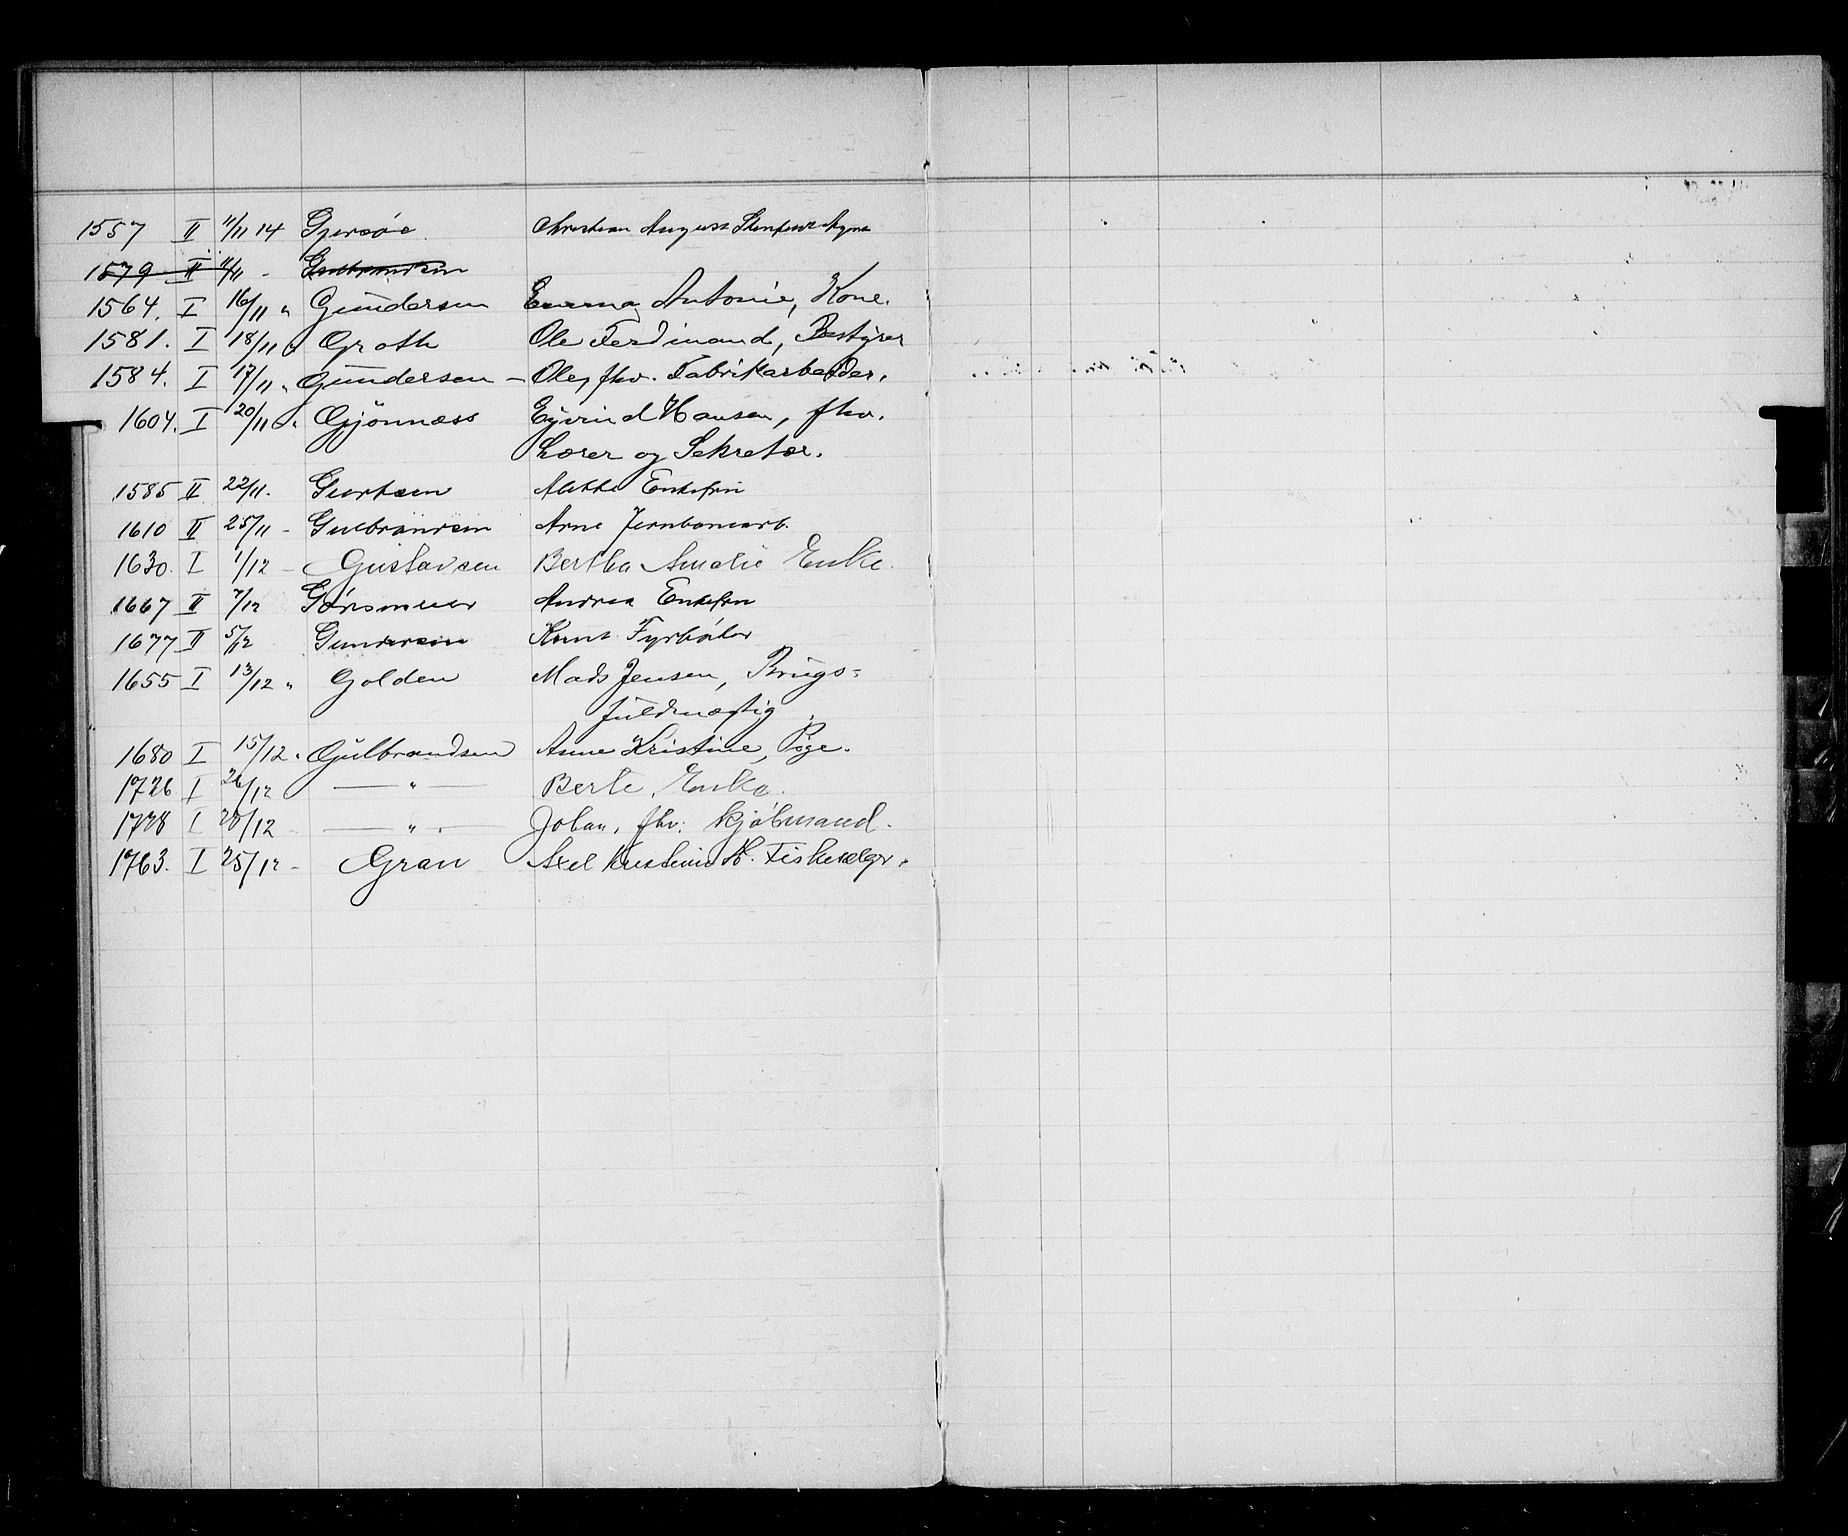 1557 II 11/11 14 Gjersøe Christian August
1579 II 11/11 - Gulbrandsen
1564. I 16/11 " Gundersen Emma Antonie, Kone.
1581. I 18/11 " Groth Ole Ferdinand, Bestyrer
1584. I 17/11 " Gundersen — Ole, fhv. Fabrikarbeider.
1604. I 20/11 " Gjönnæss Eyvind Hansen, fhv.
Lærer og Sekretær.
1585 II 22/11. Enkefru
1610 II 25/11 - Gulbrandsen Arne Jernbanearb.
1630. I 1/12 - Gustavsen Bertha Amalie Enke.
1667 II 7/12 Andrea Enkefru
1677 II 5/12 Gundersen Knut Fyrbøter
1655 I 13/12 " Golden Mads Jensen, Brugs=
fuldmægtig
1680 I 15/12 " Gulbrandsen Anne Kristine, Pige.
1726 I 26/12 — " — Berte, Enke.
1778 I 28/12 - — " — Johan, fhv. kjøbmand.
1763. I 25/12 - Gran Axel Fiskesælger.